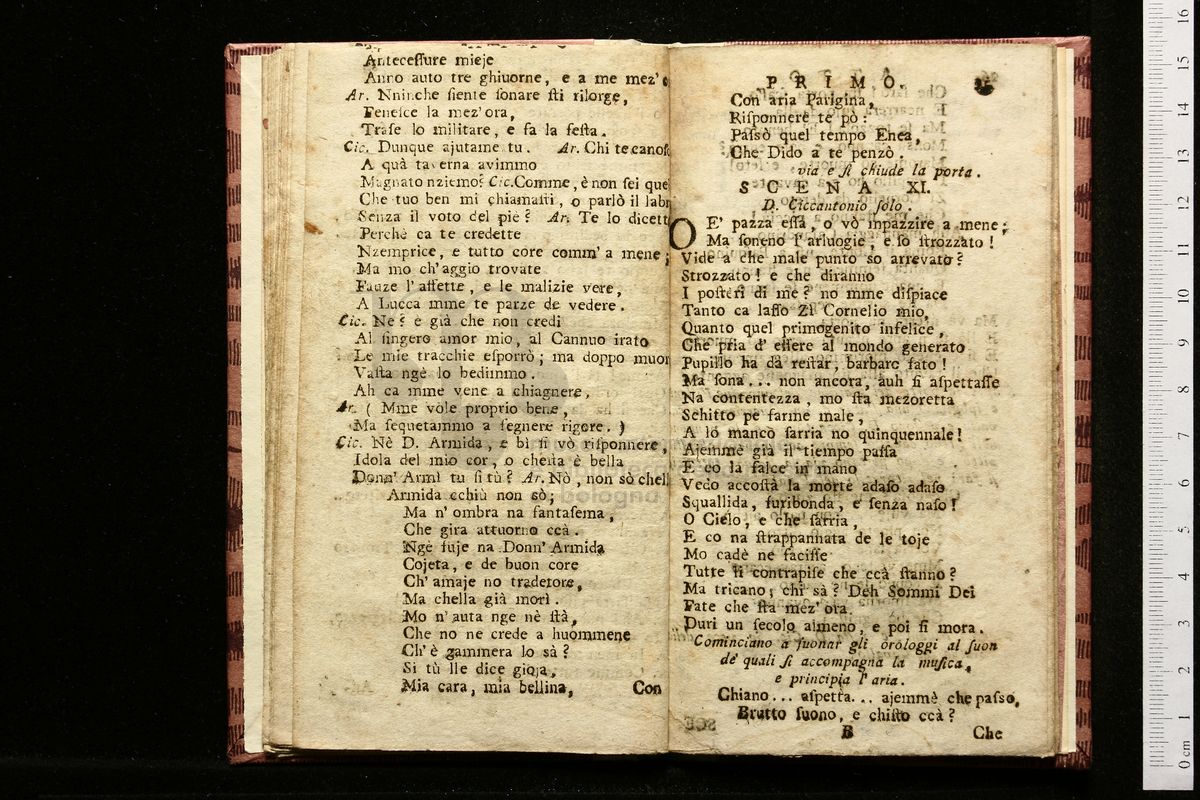 Anteceſſure mieje
Anno auto tre ghiuorne, e a me mez'
Ar. Nninche ſiente ſonare ſti rilorge,
Feneſce la mez'ora,
Traſe lo militare, e fa la feſta.
Cic. Dunque ajutame tu. Ar. Chi te canoſ
A quà taverna avimmo
Magnato nziemo? Cic. Comme, è non ſei que
Che tuo ben mi chiamaſti, o parlò il labr
Senza il voto del piè? Ar. Te lo dicett
Perchè ca te credette
Nzemprice, e tutto core comm' a mene;
Ma mo ch'aggio trovate
Fauze l'affette, e le malizie vere,
A Lucca mme te parze de vedere.
Cic. Ne? e già che non credi
Al ſingero amor mio, al Cannuo irato
Le mie tracchie eſporrò; ma doppo muor
Vaſta ngè lo bedimmo.
Ah ca mme vene a chiagnere,
Ar. ( Mme vole proprio bene,
Ma ſequetammo a ſegnere rigore. )
Cic. Nè D. Armida, e bì ſi vò riſponnere,
Idola del mio cor, o cheſta è bella
Donn' Armì tu ſi tù? Ar. Nò, non sò chell
Armida cchiù non sò;
Ma n' ombra na fantaſema,
Che gira attuorno ccà.
Nge fuje na Donn' Armida
Cojeta, e de buon core
Ch' amaje no tradetore,
Ma chella già morì.
Mo n' auta nge nè ſtà,
Che no ne crede a huommene
Ch' è gammera lo sà?
Si tù lle dice gioja,
Mia cara, mia bellina,
Con
PRIMO.
Con aria Parigina,
Riſponnere te pò:
Paſsò quel tempo Enea,
Che Dido a te penzò.
via e ſi chiude la porta.
SCENA XI.
D. Ciccantonio ſolo.
O E' pazza eſſa, o vò mpazzire a mene;
Ma ſoneno l' arluogie, e ſo ſtrozzato!
Vide a che male punto so arrevato?
Strozzato! e che diranno
I poſteri di me? no mme diſpiace
Tanto ca laſſo Zi Cornelio mio,
Quanto quel primogenito infelice,
Che pria d' eſſere al mondo generato
Pupillo ha da reſtar, barbaro fato!
Ma ſona... non ancora, auh ſi aſpettaſſe
Na contentezza, mo ſta mezoretta
Schitto pe farme male,
A lo mancò ſarria no quinquennale!
Ajemmè già il tiempo paſſa
E co la falce in mano
Vedo accoſtà la morte adaſo adaſo
Squallida, furibonda, e ſenza naſo!
O Cielo, e che ſarria,
E co na ſtrappannata de le toje
Mo cadè ne faciſſe
Tutte li contrapiſe che ccà ſtanno?
Ma tricano; chi sà? Deh Sommi Dei
Fate che ſta mez' ora
Duri un ſecolo almeno, e poi ſi mora.
Cominciano a ſuonar gli orologgi al ſuon
de' quali ſi accompagna la muſica,
e principia l' aria.
Chiano... aſpetta... ajemmè che paſso,
Brutto ſuono, e chiſto ccà?
B
Che